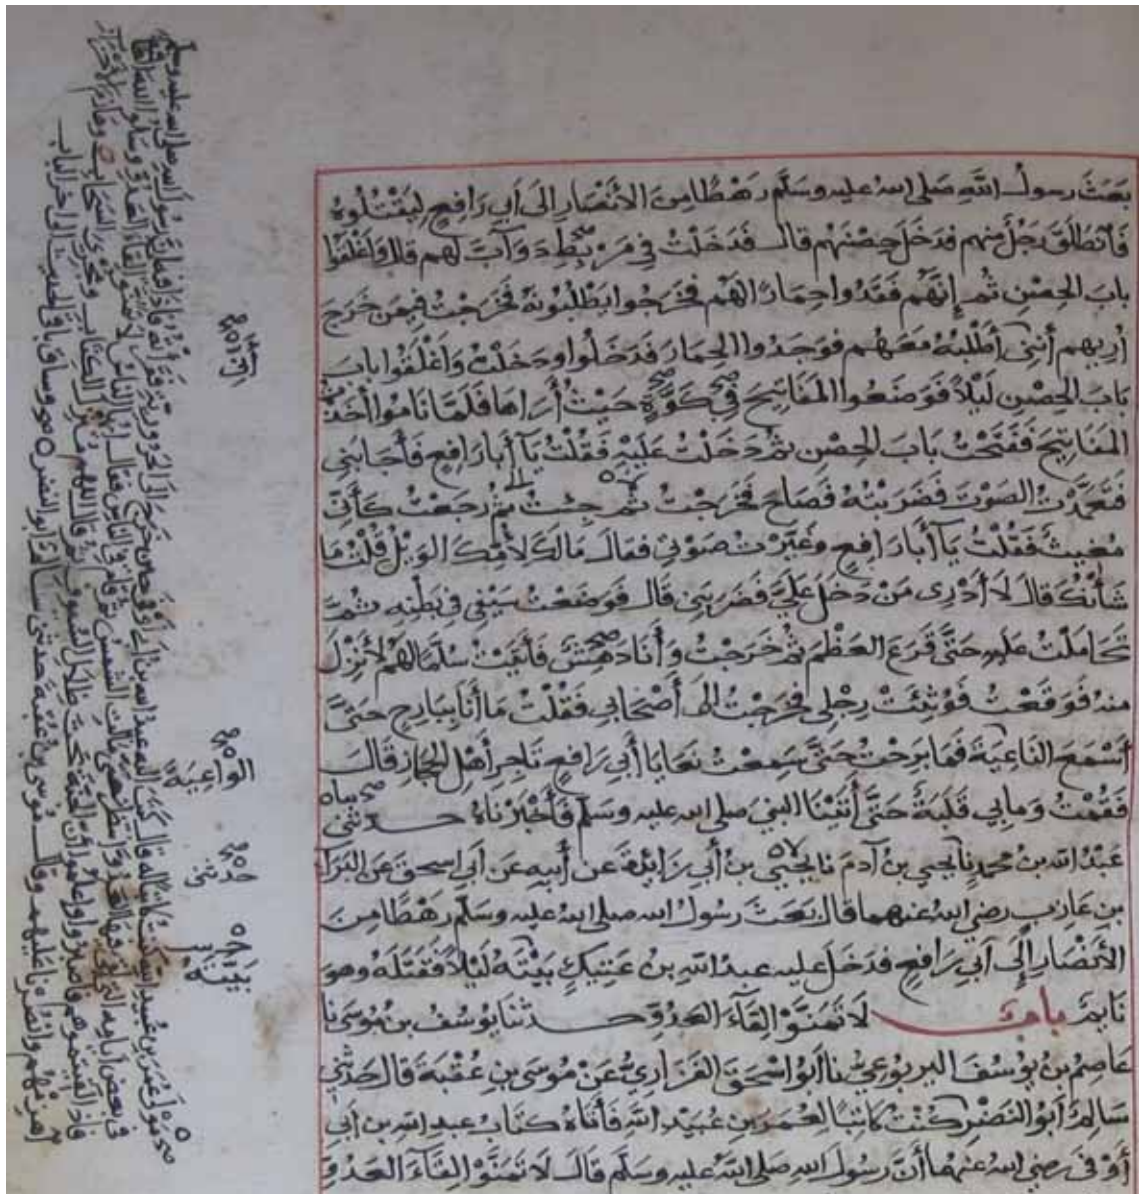 بعَثَ رسولُ اللهِ صَلى اللهُ عليه وسَلم رَهْطًا مِنَ الأنْصَارِ إلَى أبي رَافِعٍ لِيَقْتُلُوهُ
فَانْطَلَقَ رَجُلٌ مِنهم فدَخَلَ حِصْنَهُم قالَ فَدَخَلْتُ فِي مَرْبِطِ دَوَآبَّ لَهم قال وَاغْلَقُوا
بابَ الحِصْنِ ثم إنَّهُم فَقَدُوا حِمَارًا لَهُم فخَرَجُوا يَطْلُبُونَهُ فخَرَجْتُ فِيمَن خَرَجَ
أُرِيهم أنَّنِي أطْلُبُهُ مَعَهُم فوَجَدُوا الحِمارَ فَدَخَلُوا وَدَخَلْتُ وَاغْلَقُوا باب
بَابَ الحِصْنِ لَيْلاً فَوَضَعُوا المَفَاتِيحَ فِي كَوَّةٍ حَيْثُ أَرَاهَا فَلَمَّا نَامُوا أخَذْتُ
المَفَاتِيحَ فَفَتَحْتُ بَابَ الحِصْنِ ثم دَخَلْتُ عَلَيْهِ فَقُلْتُ يَآ أبا رَافِعٍ فأجَابَنِي
فَتَعَمَّدْتُ الصَّوْتَ فَضَرَبْتُهُ فَصَاحَ فَخَرَجْتُ ثم جِئْتُ ثم رَجَعْتُ كَأنِّي
مُغِيثٌ فَقُلْتُ يَآ أبَا رَافِعٍ وغَيَّرْتُ صَوْتِي فَقالَ مَالَكَ لأُمِّكَ الوَيْلُ قُلْتُ مَا
شَأنُكَ قالَ لَا أدْرِى مَنْ دَخَلَ عَلَيَّ فَضَرَبَنِي قالَ فَوَضَعْتُ سَيْفِي فِي بَطْنِهِ ثُمَّ
تَحَامَلْتُ عليه حَتَّى قَرَعَ العَظْمَ ثم خَرَجْتُ وَأنَا دَهِشٌ فَأتَيْتُ سُلَّمًا لَهُم لأنْزِلَ
منهُ فوَقَعْتُ فَوُثِئَتْ رِجْلِي فخَرَجْتُ إلى أصْحَابِي فَقُلْتُ مَا أنَا بِبَارِحٍ حَتَّى
أسْمَعَ النَاعِيَةَ فَمَا بَرِحْتُ حَتَّى سَمِعْتُ نَعَايَا أبِي رَافِعٍ تَاجِرِ أهْلِ الحِجَازِ قَالَ
فَقُمْتُ وَمَا بِي قَلَبَةٌ حَتَّى أتَيْنَا النبيَّ صلى الله عليه وسَلم فَأخْبَرْنَاهُ حدثني
عَبْدُ الله بن محمدٍ نا يحيي بن آدمَ نا يَحْيَي بنُ أبي زَائِدةَ عَن أبِيهِ عَن أبي إسحقَ عَن البَرَآءِ
بنِ عَازِبٍ رضي الله عنهما قال بَعَثَ رَسُولُ الله صلى الله عليه وسَلم رَهْطًا مِنَ
الأنْصَارِ إلَى أبي رَافِعٍ فدَخَلَ عليه عبدُ اللهِ بن عَتِيكٍ بَيْتَهُ لَيْلاً فَقَتَلَهُ وهو
نَايِمٌ بابٌ لَا تَمَنَّوْا لِقَآءَ العَدُوِّ حدثنا يُوسُف بن مُوسَى نا
عَاصِمُ بنُ يُوسُفَ اليربُوعِيُّ نا أبُو إسْحَقَ الفَزَارِيُّ عَنْ مُوسَى بنِ عُقْبَةَ قالَ حَدثني
سَالِمٌ أبُو النَّضْرِ كُنْتُ كَاتِبًا لِعُمَرَ بنِ عُبَيْدِ اللهِ فَأتَاهُ كتَابُ عبدِ الله بن أبي
أوْفَى رَضي اللهُ عنهما أنَّ رَسُولَ الله صَلى اللهُ عليه وسَلم قَالَ لَا تَمَنَّوْا لِقَآءَ العَدُوِّ
الوَاعِيَةَ
حَدثني
مَولى عُمَرَ بن عُبيد الله كنتُ كاتبًا له قالَ كتبَ اليه عبدُ الله بن أبي أوفى حين خرجَ إلى الحَرُورِيَّةِ فقرأتُه فإذا فيه إنَّ رسولَ الله صلى الله عليه وسلم
في بعضِ أيامِه التي لقي فيها العدوَّ انتظر حتى مَالت الشمسُ ثم قام في الناس فقال أيها الناسُ لا تمنَّوا لقاءَ العدوِّ وسَلوا الله العافية
فإذا لقيتموهم فاصبروا واعلموا أن الجنةَ تحتَ ظلالِ السُيوف ثم قال اللهم مُنزلَ الكتابِ ومُجري السحَابِ وهَازمَ الأحزاب
اهزمهُم وانصُرنا عليهم وقالَ مُوسى بنُ عُقبة حدثني سَالم أبو النضر